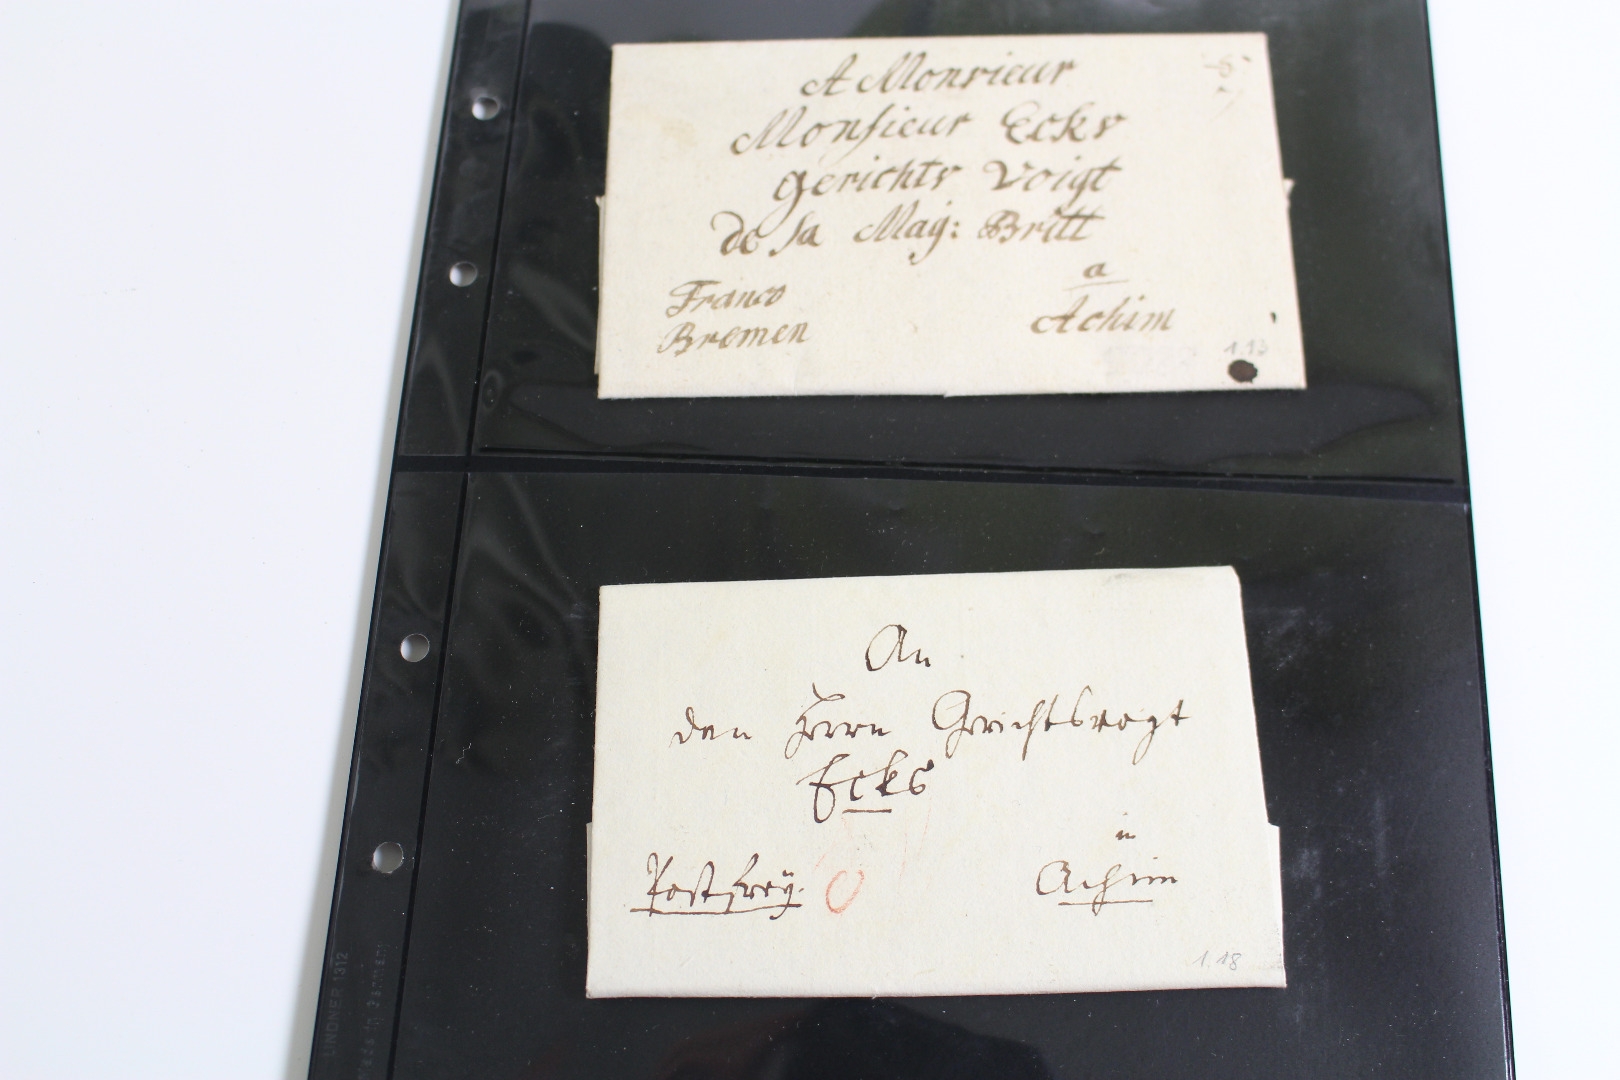 A Monsieur
Monsieur Ecks
Gerichts Voigt
de sa May: Britt
a
Franco
Bremen
Achim
1.13
An
den Herrn Gerichtsvogt
Ecks
in
Postfrey.
Achim
1.18
LINDNER 1312
Made in Germany